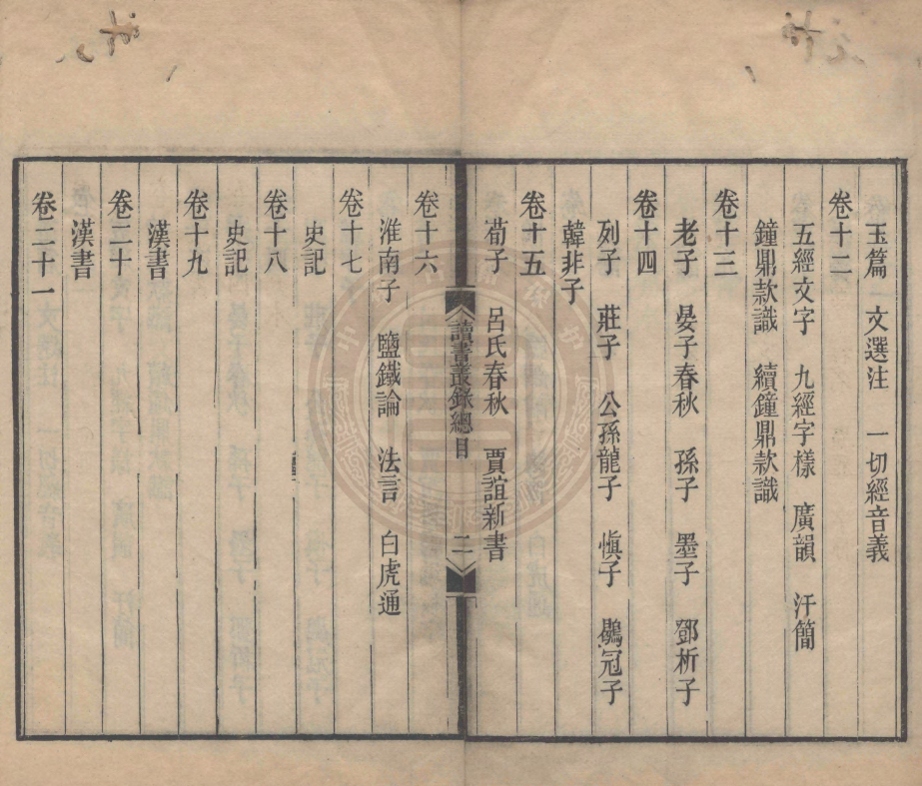 玉篇 文選注 一切經音義
卷十二
五經文字 九經字樣 廣韻 汗簡
鐘鼎款識 續鐘鼎款識
卷十三
老子 晏子春秋 孫子 墨子 鄧析子
卷十四
列子 莊子 公孫龍子 慎子 鶡冠子
韓非子
卷十五
荀子 呂氏春秋 賈誼新書
讀書叢錄總目 二
卷十六
淮南子 鹽鐵論 法言 白虎通
卷十七
史記
卷十八
史記
卷十九
漢書
卷二十
漢書
卷二十一